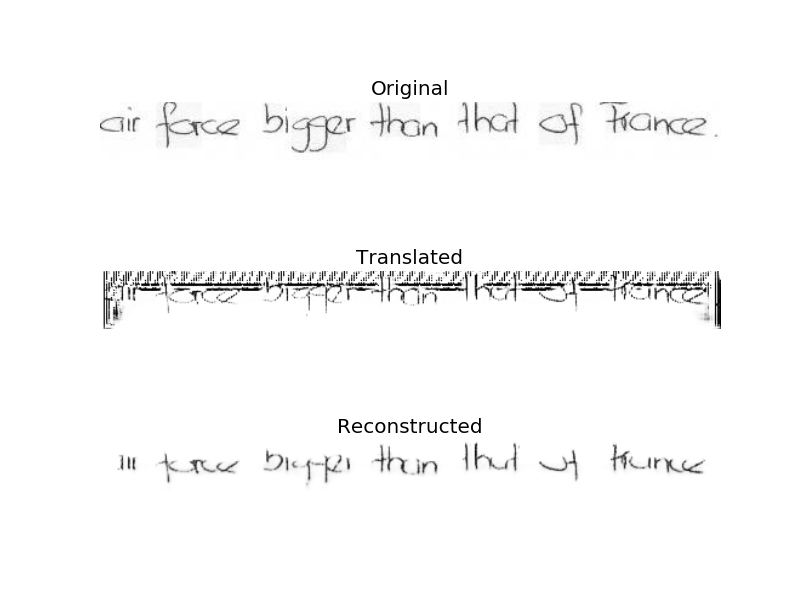 Original
air force bigger than that of France.
Translated
air force bigger than that of France
Reconstructed
force than that of